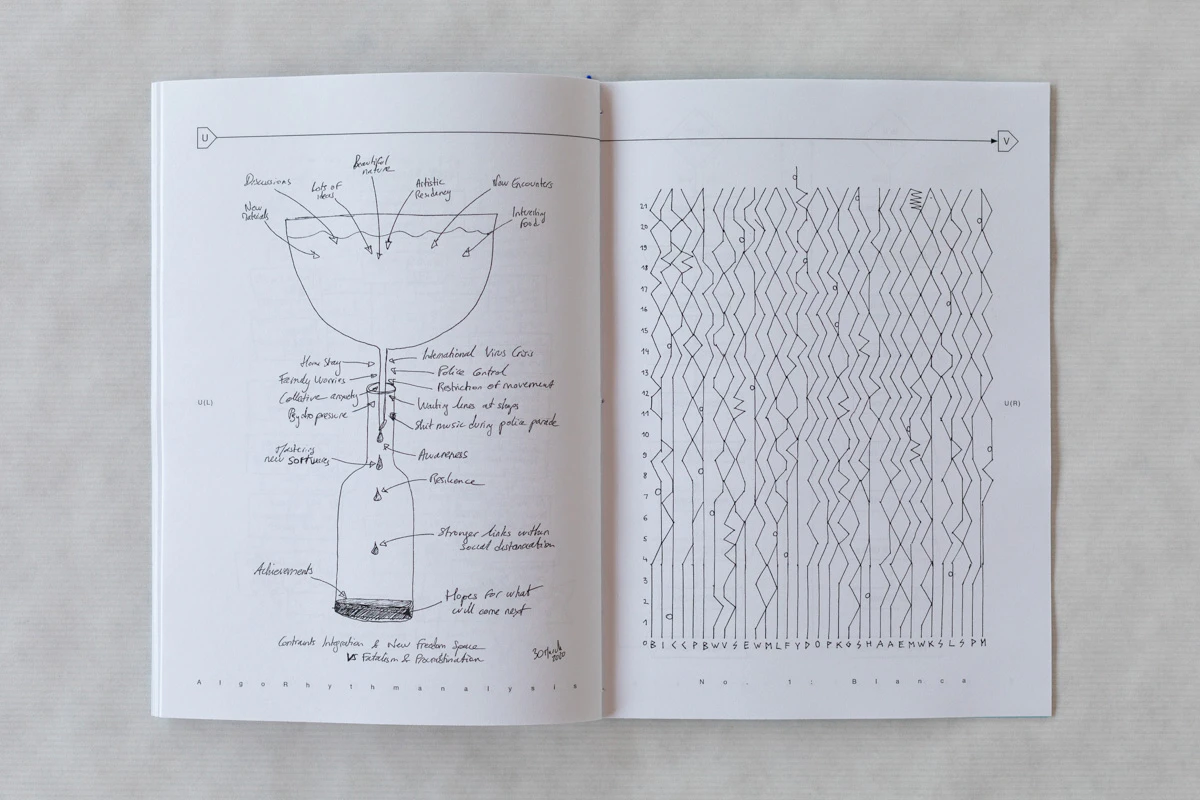 U
V
Beautiful
nature
Discussions
Lots of
ideas
Artistic
Residency
New Encounters
New
Interesting
Food
Home Stay
International Virus Crisis
Family Worries
Police Control
Restriction of movement
Collective anxiety
Waiting lines at shops
Psycho pressure
Shit music during police parade
U(L)
Mastering
new softwares
Awareness
Resilience
Stronger links within
Social distanciation
Achievements
Hopes for what
will come next
Contraints Integration & New Freedom Space
VS Fatalism & Procrastination
30 March
2020
AlgoRhythmanalysis
21
20
19
18
17
16
15
14
13
12
11
10
9
8
7
6
5
4
3
2
1
0
U(R)
No. 1: Blanca